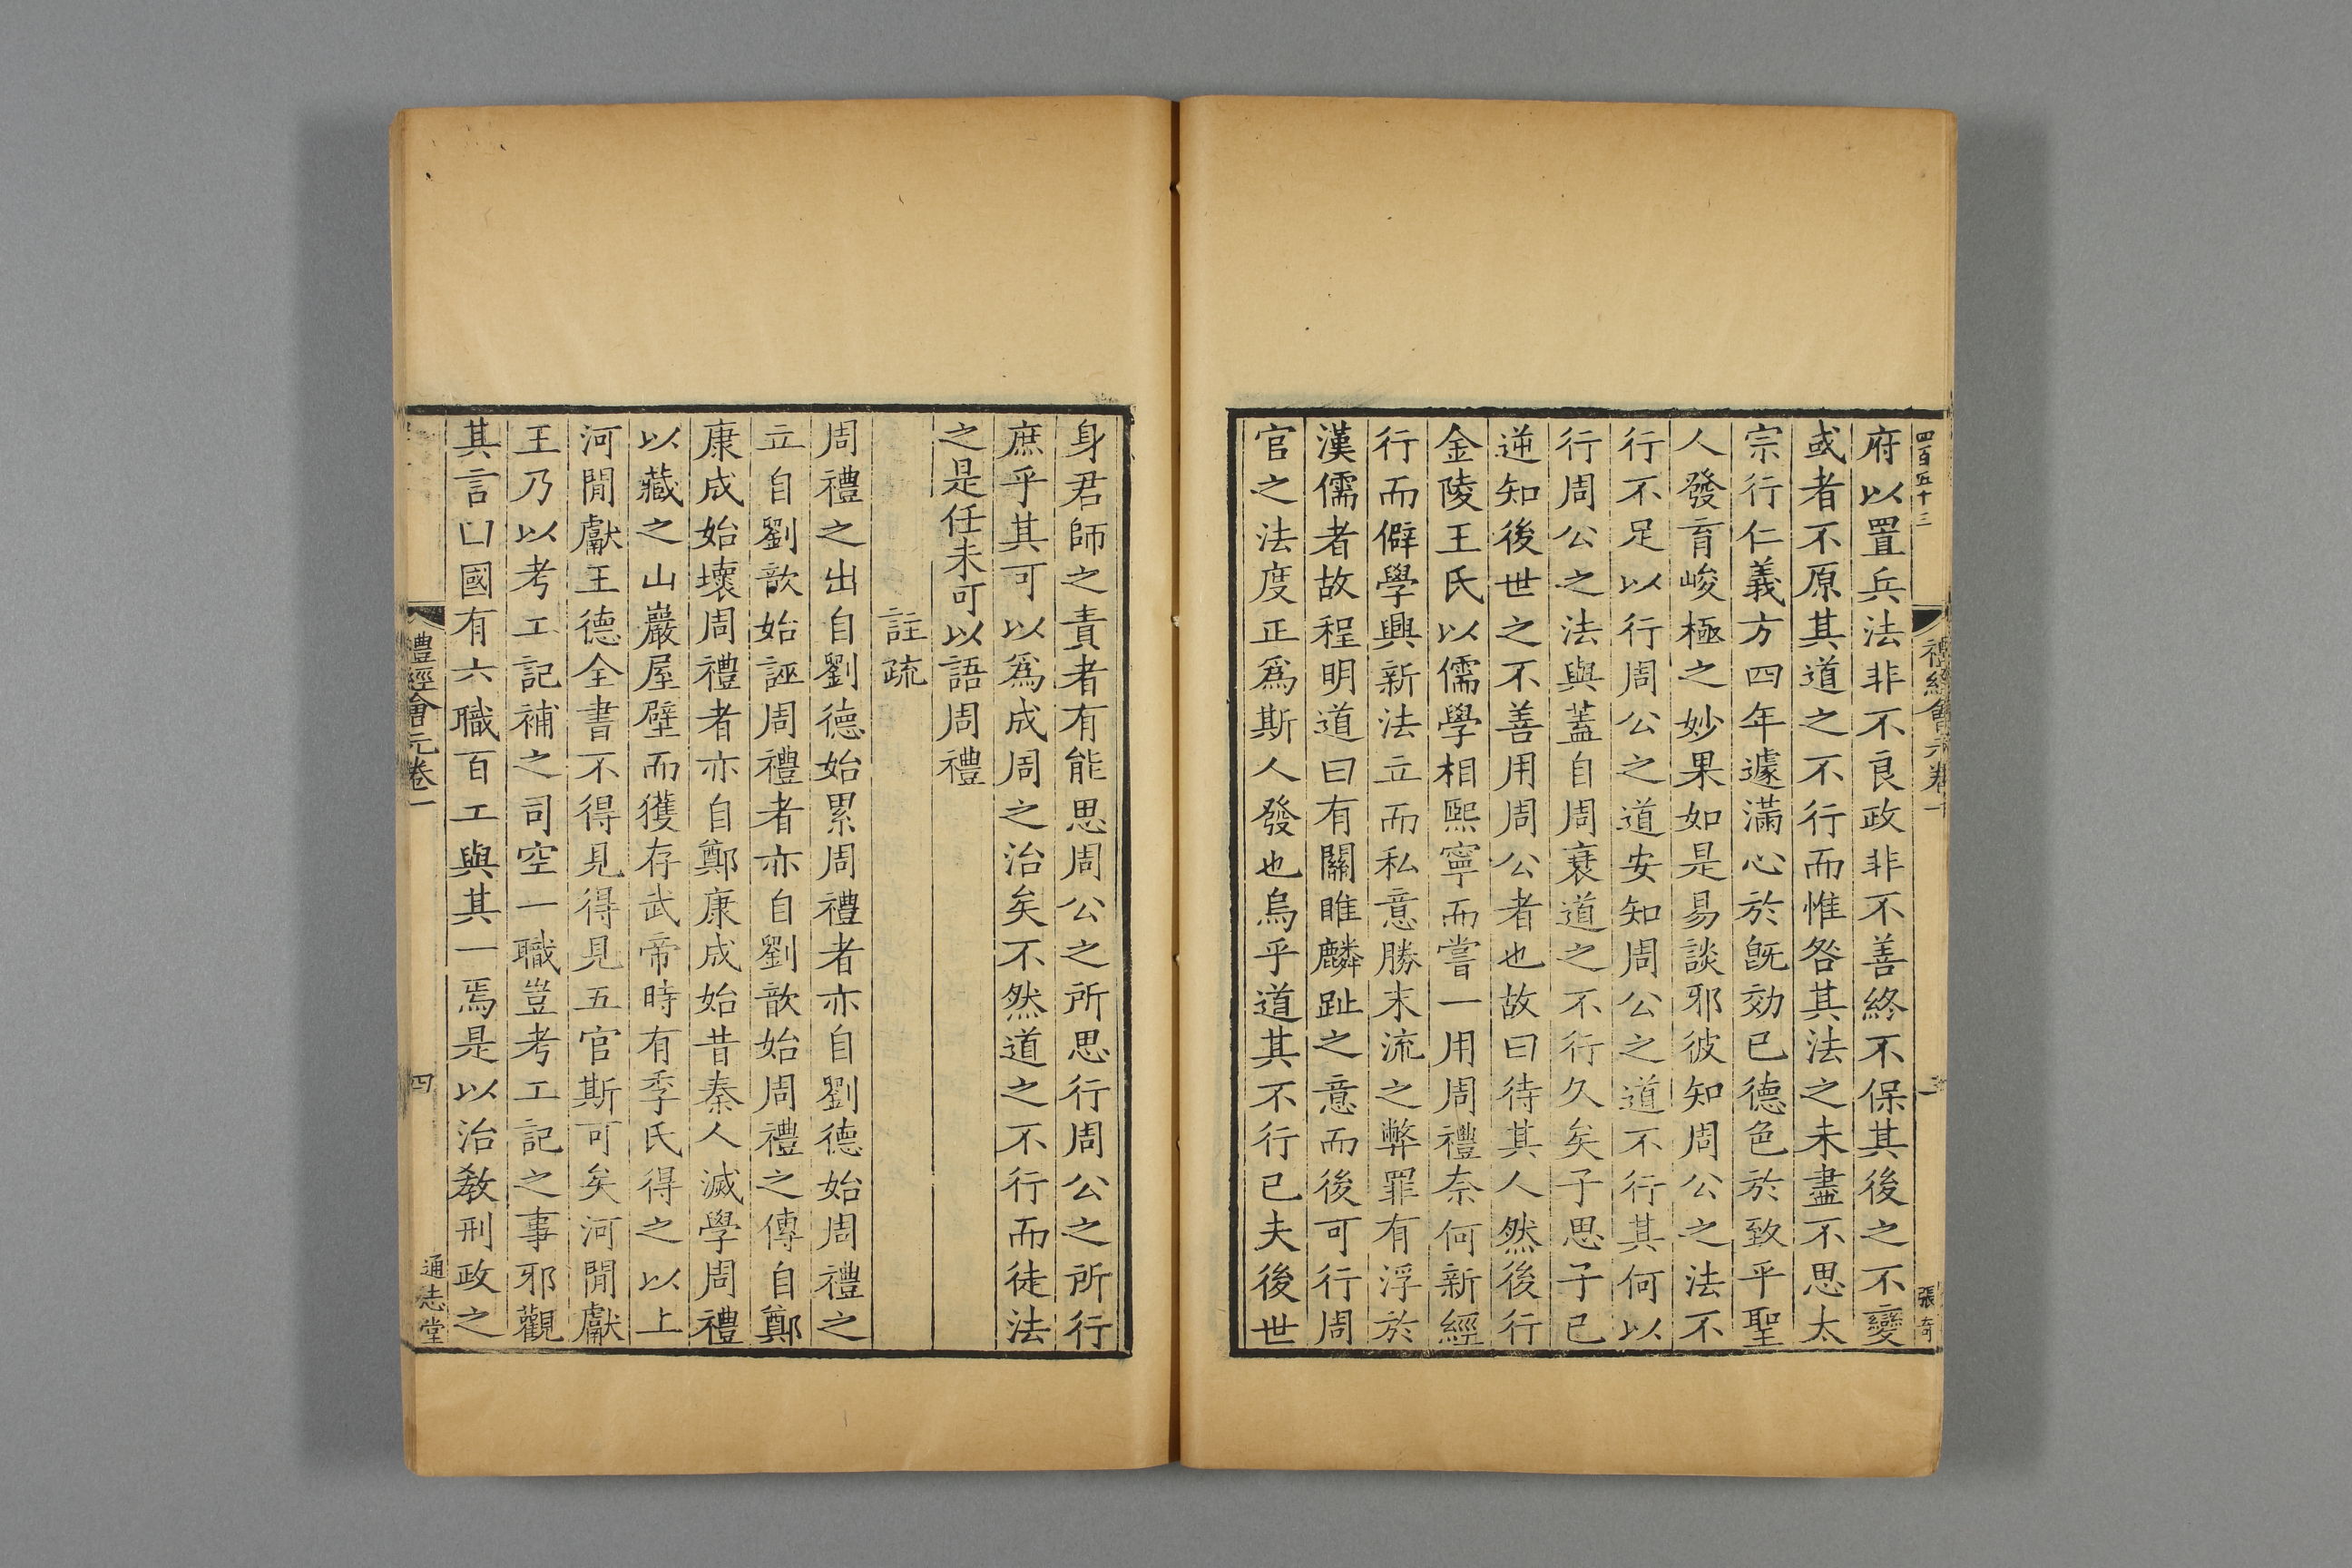 四百五十三
禮經會元卷一
三
張奇
府以置兵法非不良政非不善終不保其後之不變
或者不原其道之不行而惟咎其法之未盡不思太
宗行仁義方四年遽滿心於旣効已德色於致乎聖
人發育峻極之妙果如是易談邪彼知周公之法不
行不足以行周公之道安知周公之道不行其何以
行周公之法與蓋自周衰道之不行久矣子思子已
逆知後世之不善用周公者也故曰待其人然後行
金陵王氏以儒學相熙寧而嘗一用周禮柰何新經
行而僻學興新法立而私意勝末流之弊罪有浮於
漢儒者故程明道曰有關雎麟趾之意而後可行周
官之法度正爲斯人發也烏乎道其不行已夫後世
身君師之責者有能思周公之所思行周公之所行
庶乎其可以爲成周之治矣不然道之不行而徒法
之是任未可以語周禮
註疏
周禮之出自劉德始累周禮者亦自劉德始周禮之
立自劉歆始誣周禮者亦自劉歆始周禮之傳自鄭
康成始壞周禮者亦自鄭康成始昔秦人滅學周禮
以藏之山巖屋壁而獲存武帝時有季氏得之以上
河閒獻王德全書不得見得見五官斯可矣河閒獻
王乃以考工記補之司空一職豈考工記之事邪觀
其言曰國有六職百工與其一焉是以治教刑政之
禮經會元卷一
四
通志堂